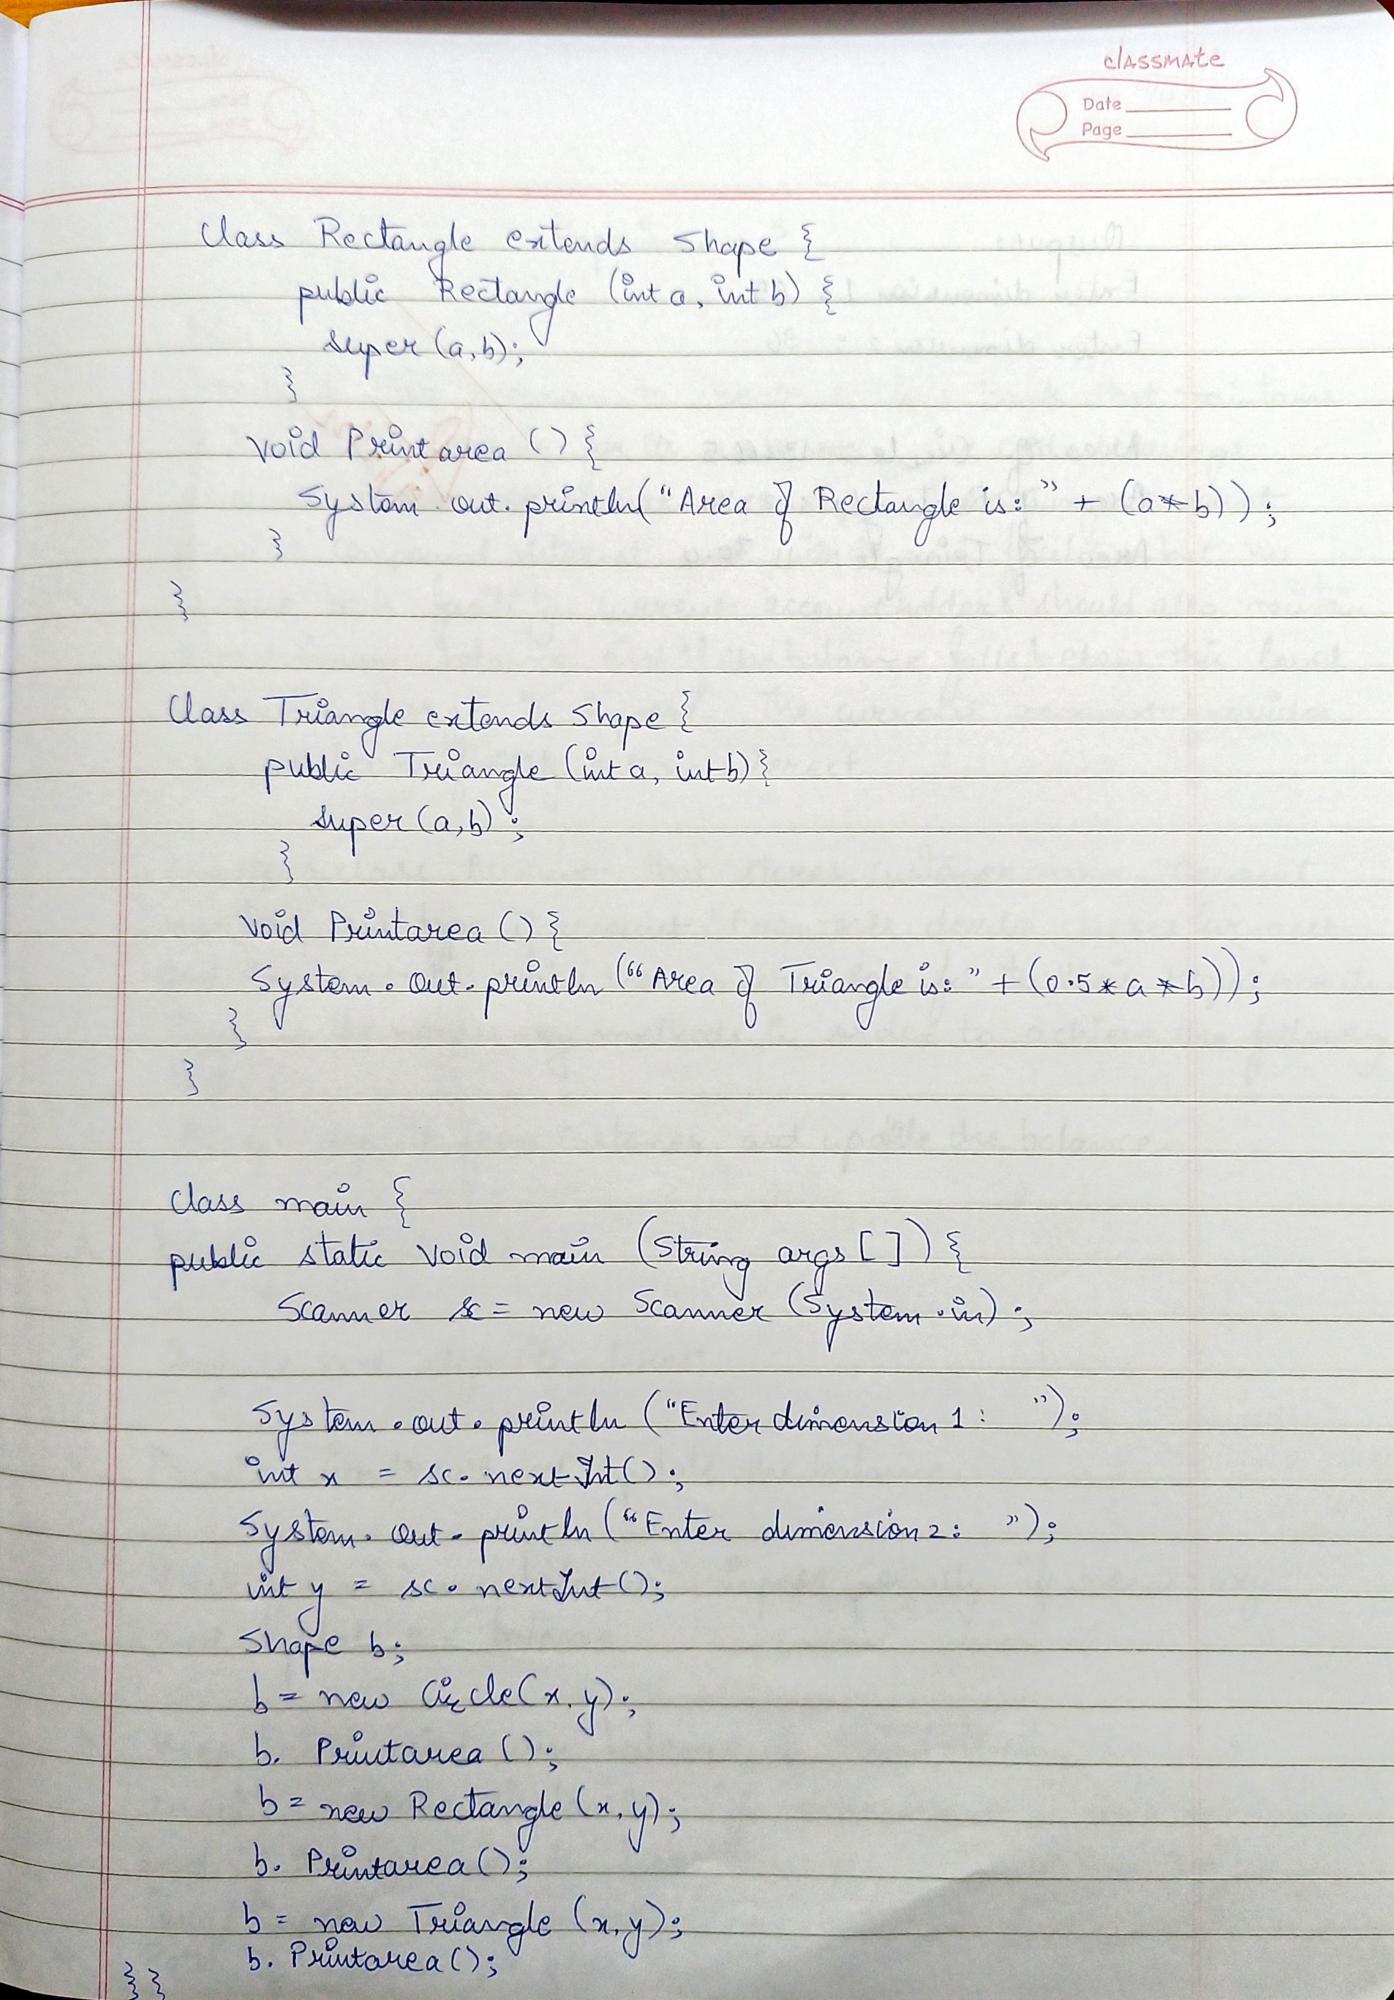 classmate
Date
Page
class Rectangle extends Shape {
public Rectangle (int a, int b) {
super (a,b);
}
void Printarea () {
System.out.println("Area of Rectangle is: " + (a*b));
}
}
class Triangle extends Shape {
public Triangle (int a, int b) {
super (a,b);
}
void Printarea () {
System.out.println ("Area of Triangle is: " + (0.5*a*b));
}
}
class main {
public static void main (String args []) {
Scanner sc = new Scanner (System.in);
System.out.println ("Enter dimension 1: ");
int x = sc.nextInt();
System.out.println ("Enter dimension 2: ");
int y = sc.nextInt();
Shape b;
b = new Circle(x,y);
b. Printarea ();
b = new Rectangle (x,y);
b. Printarea ();
b = new Triangle (x,y);
b. Printarea ();
}}